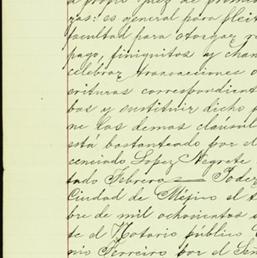 gas: es general para pleit
facultad para otorgar
pago, finiquitos y
celebrar transacciones
crituras correspondient
bos y sustituir dicho
ne las demas cláusul
está bastanteado por el
cenciado Lopez Negrete
tado Febrero — Poder
Ciudad de Méjico el
bre de mil ochocientos
te el Notario público
nio Ferreiro por el Señ